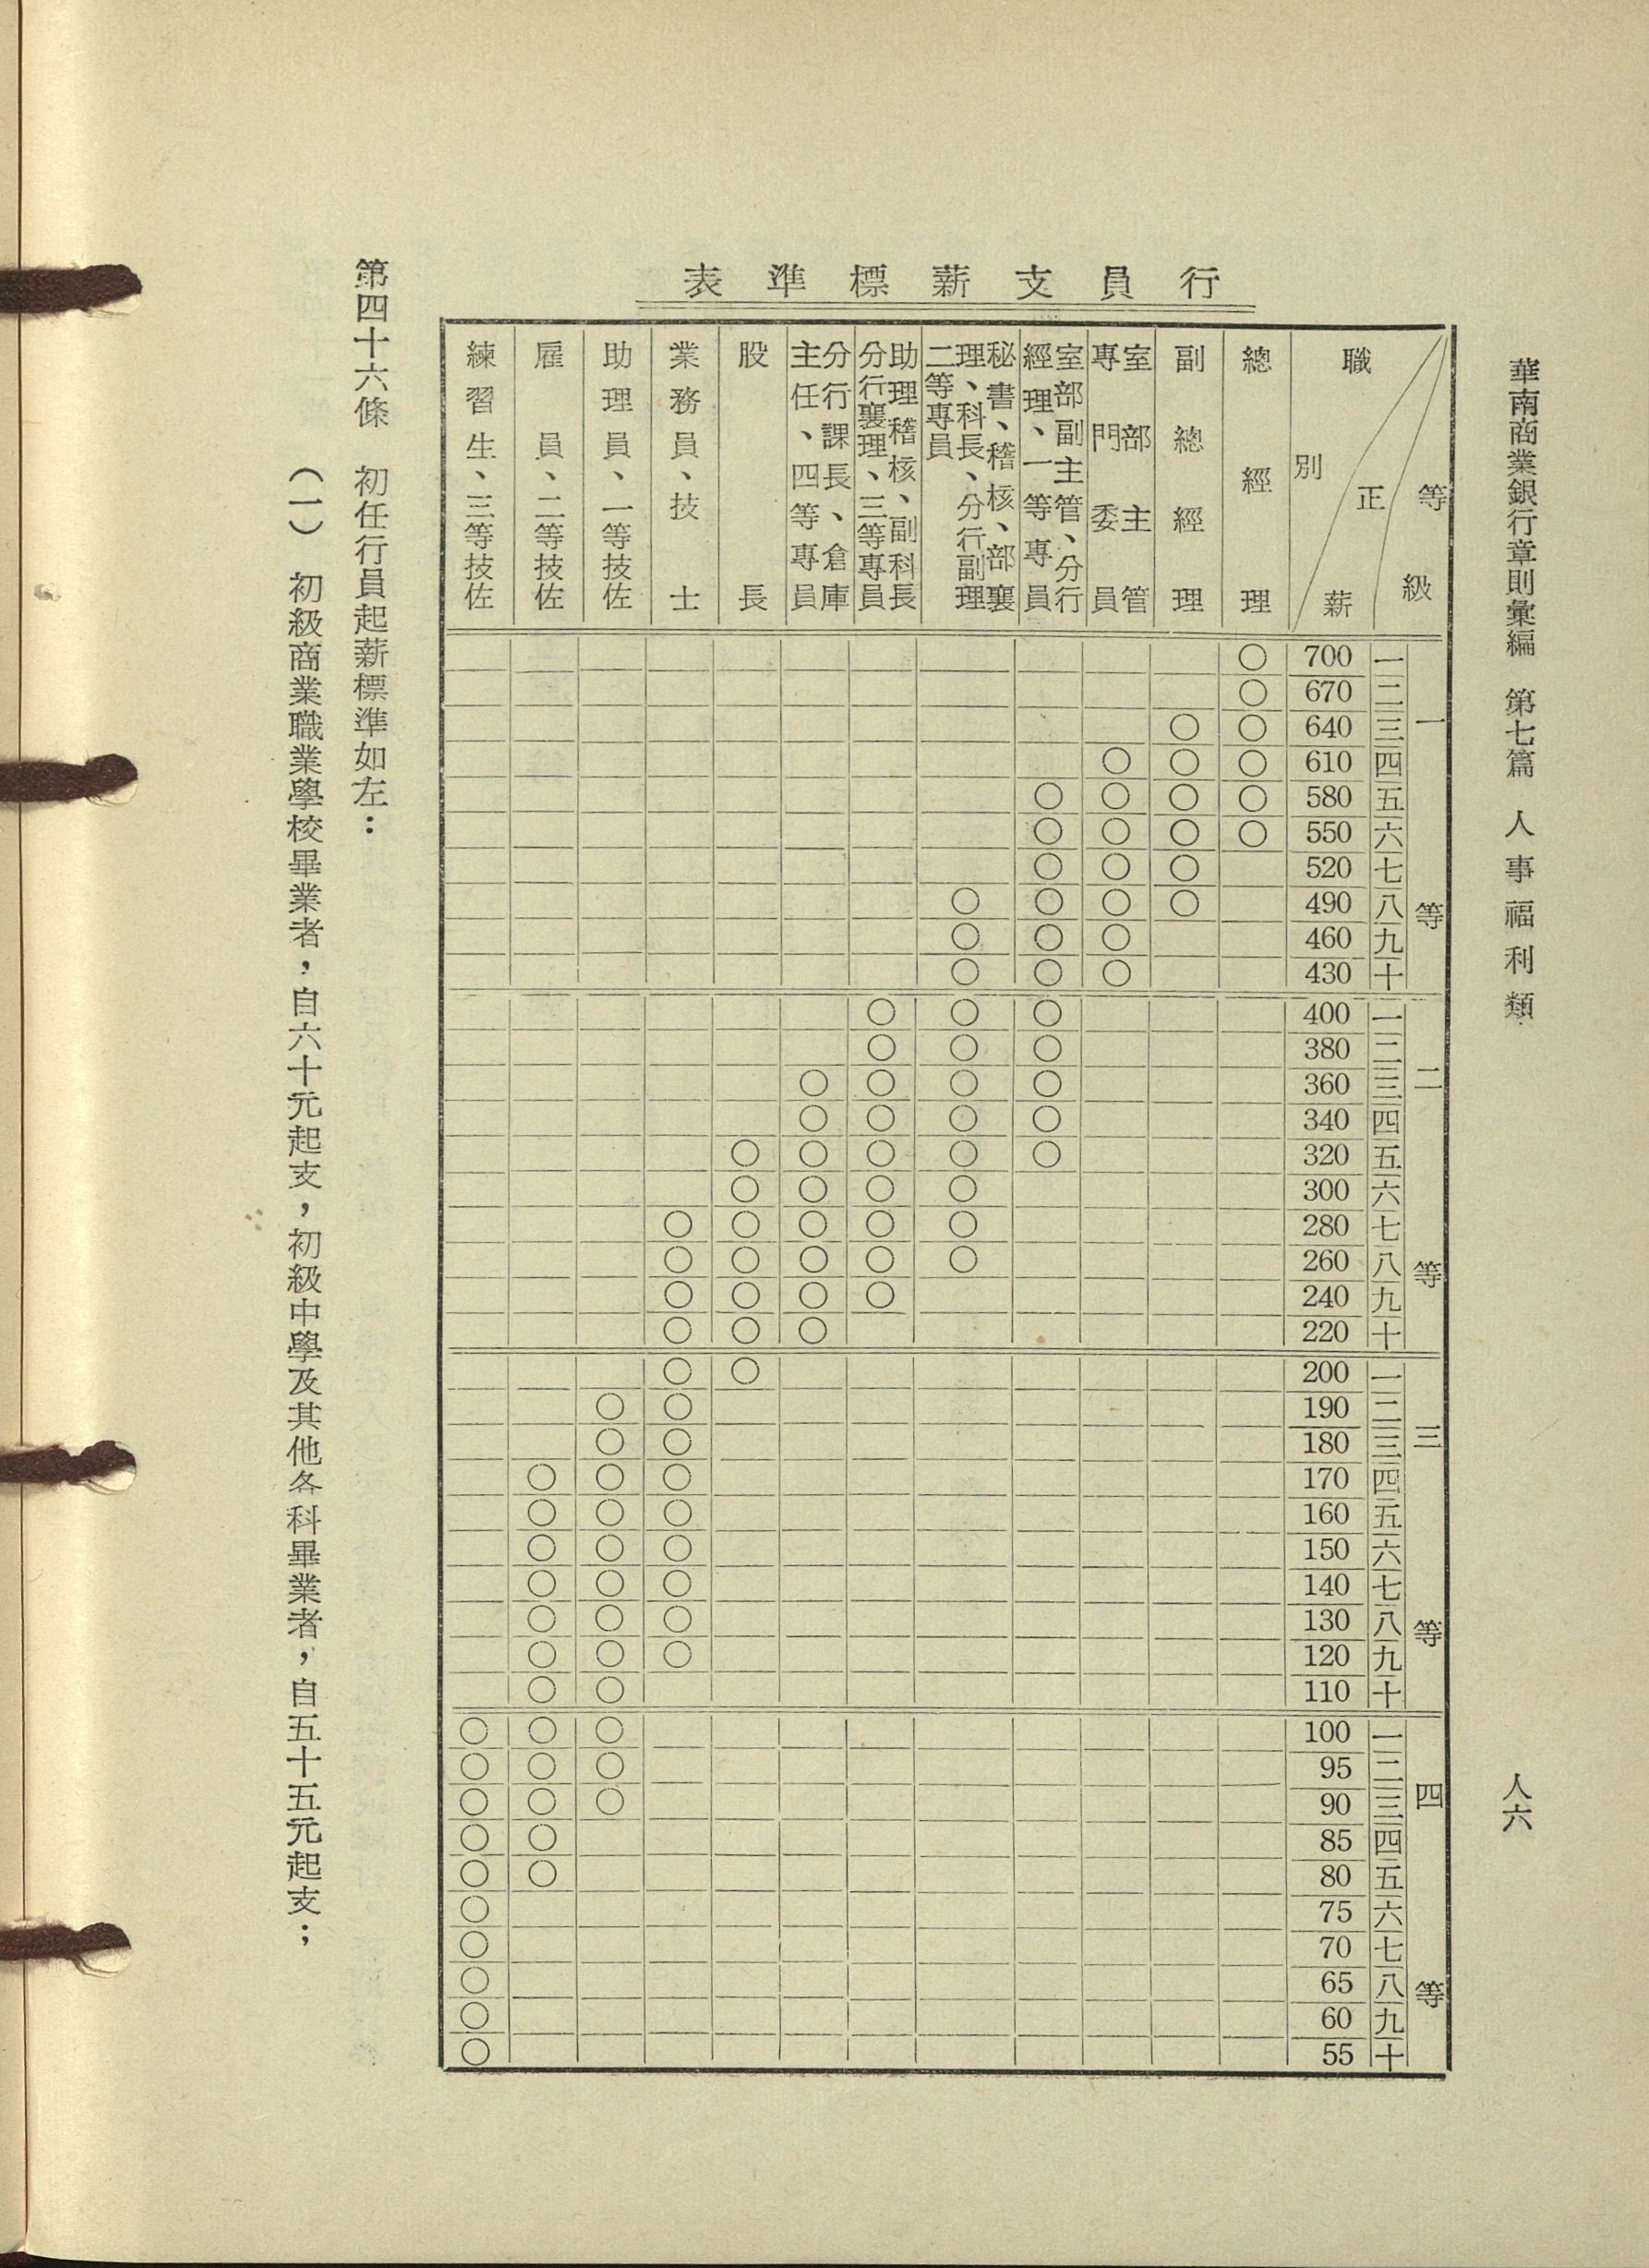 華南商業銀行章則彙編 第七篇 人事福利類
人六
行員支薪標準表
等級
正薪
職別
總經理
副總經理
室部主管
專門委員
室部副主管、分行
經理、一等專員
秘書、稽核、部襄
理、科長、分行副理
二等專員
助理稽核、副科長
分行襄理、三等專員
分行課長、倉庫
主任、四等專員
股長
業務員、技士
助理員、一等技佐
雇員、二等技佐
練習生、三等技佐
一等
一 700 ○
二 670 ○
三 640 ○ ○
四 610 ○ ○ ○
五 580 ○ ○ ○ ○
六 550 ○ ○ ○ ○
七 520 ○ ○ ○
八 490 ○ ○ ○ ○
九 460 ○ ○ ○
十 430 ○ ○ ○
二等
一 400 ○ ○ ○
二 380 ○ ○ ○
三 360 ○ ○ ○ ○
四 340 ○ ○ ○ ○
五 320 ○ ○ ○ ○ ○
六 300 ○ ○ ○ ○
七 280 ○ ○ ○ ○ ○
八 260 ○ ○ ○ ○ ○
九 240 ○ ○ ○ ○
十 220 ○ ○ ○
三等
一 200 ○ ○
二 190 ○ ○
三 180 ○ ○
四 170 ○ ○ ○
五 160 ○ ○ ○
六 150 ○ ○ ○
七 140 ○ ○ ○
八 130 ○ ○ ○
九 120 ○ ○ ○
十 110 ○ ○
四等
一 100 ○ ○ ○
二 95 ○ ○ ○
三 90 ○ ○ ○
四 85 ○ ○
五 80 ○ ○
六 75 ○
七 70 ○
八 65 ○
九 60 ○
十 55 ○
第四十六條 初任行員起薪標準如左：
（一） 初級商業職業學校畢業者，自六十元起支，初級中學及其他各科畢業者，自五十五元起支；